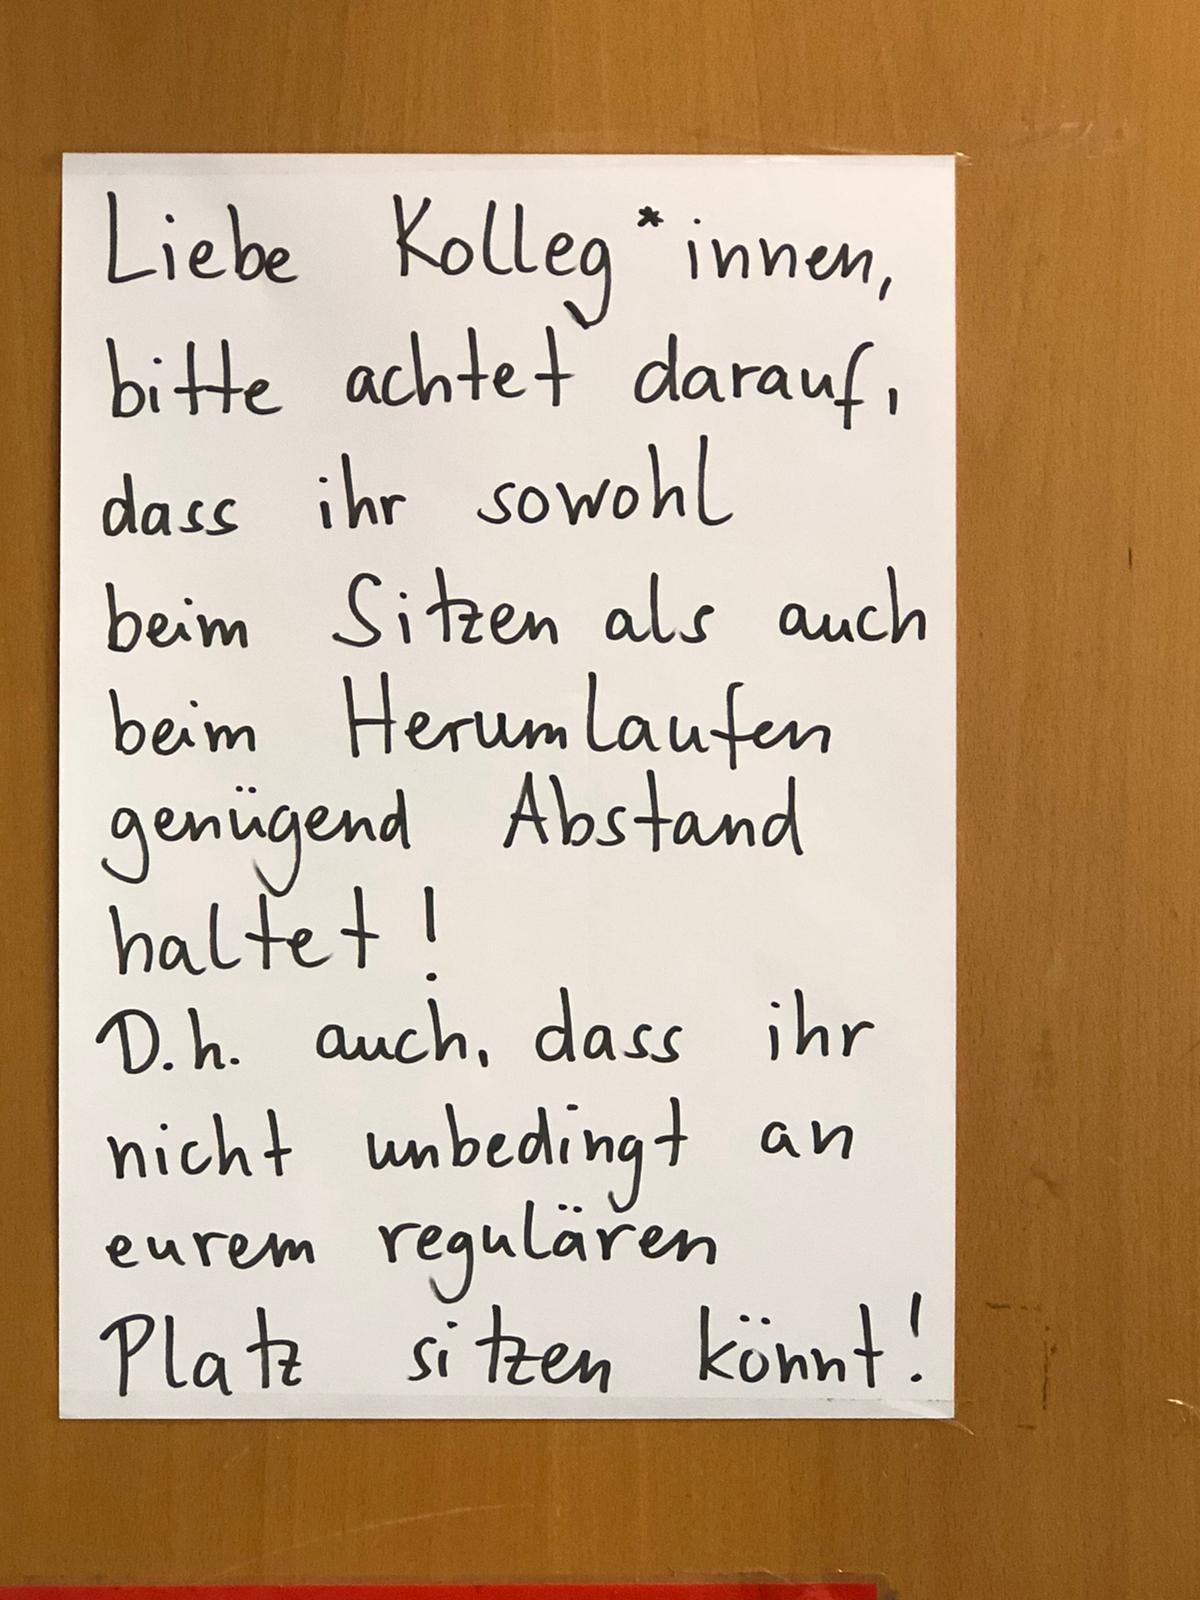 Liebe Kolleg*innen,
bitte achtet darauf,
dass ihr sowohl
beim Sitzen als auch
beim Herumlaufen
genügend Abstand
haltet!
D.h. auch, dass ihr
nicht unbedingt an
eurem regulären
Platz sitzen könnt!